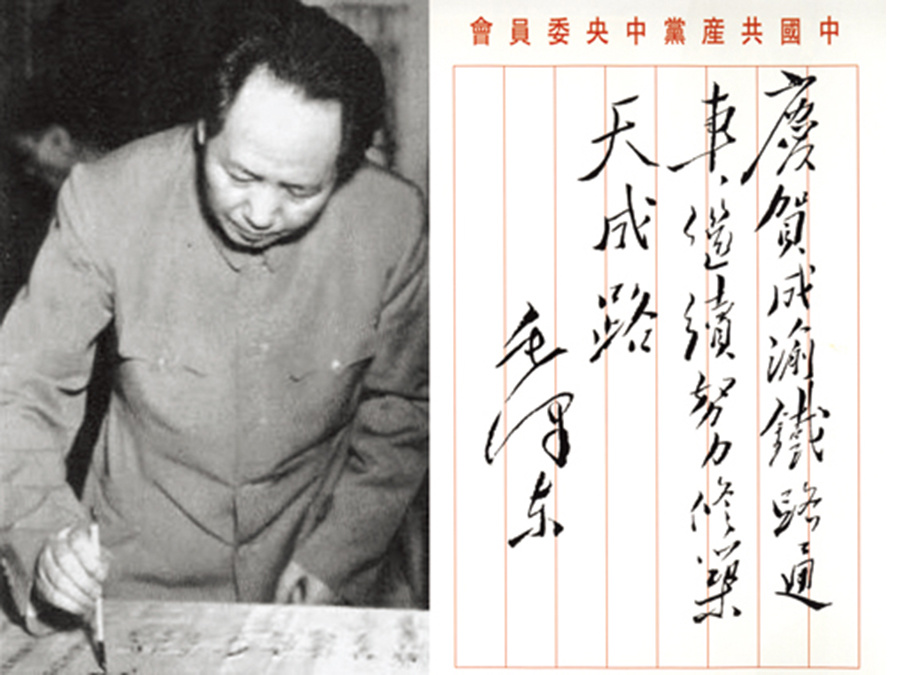 中國共産黨中央委員會
慶賀成渝鐵路通
車、繼續努力修築
天成路
毛澤东